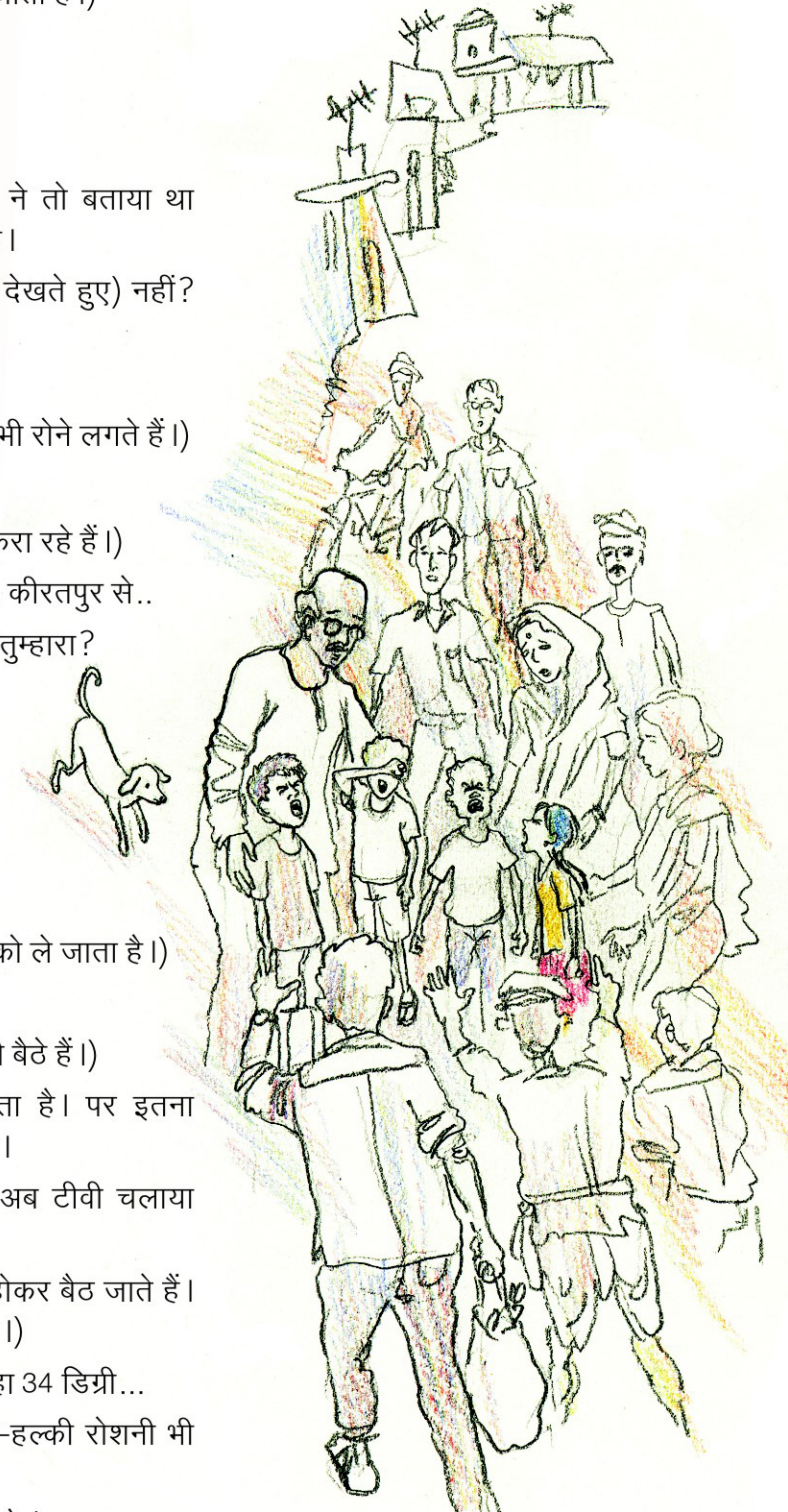 ने तो बताया था
।
देखते हुए) नहीं?
भी रोने लगते हैं।)
रहे हैं।)
कीरतपुर से..
तुम्हारा?
को ले जाता है।)
बैठे हैं।)
है। पर इतना
।
अब टीवी चलाया
होकर बैठ जाते हैं।
।)
34 डिग्री...
-हल्की रोशनी भी